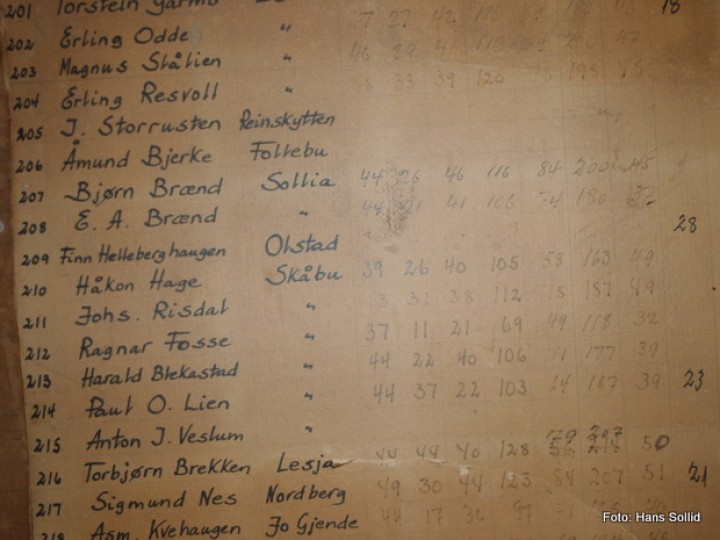 201 Torstein Garmo 18
202 Erling Odde " 7 27 42 116
203 Magnus Stålien " 46 29 41 116
204 Erling Resvoll " 33 39 120 198
205 J. Storrusten Reinskytten
206 Åmund Bjerke Follebu
207 Bjørn Brænd Sollia 44 26 46 116 84 200 45
208 E. A. Brænd " 44 41 106 180 32 28
209 Finn Helleberghaugen Olstad
210 Håkon Hage Skåbu 39 26 40 105 58 163 49
211 Johs. Risdal " 31 38 112 187 49
212 Ragnar Fosse " 37 11 21 69 49 118 32
213 Harald Blekastad " 44 22 40 106 177 39
214 Paul O. Lien " 44 37 22 103 167 39 23
215 Anton J. Veslum "
216 Torbjørn Brekken Lesja 44 44 40 128 79 207 50
217 Sigmund Nes Nordberg 49 30 44 123 84 207 51 21
218 Asm. Kvehaugen Jo Gjende 44 17 36 97
Foto: Hans Sollid